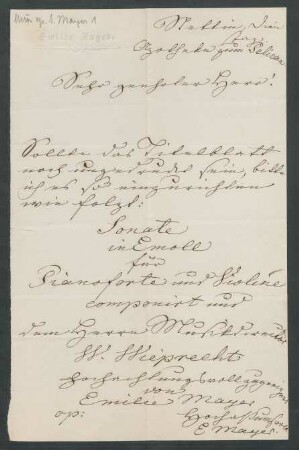 Mus. ep. E. Mayer 1
Emilie Mayer
Stettin, den
Apotheke zum Pelican
Sehr geehrter Herr!
Sollte das Titelblatt
noch ungedruckt sein, bitte
ich es so einzurichten
wie folgt:
Sonate
in Emoll
für
Pianoforte und Violine
componirt und
dem Herrn Musikdirector
W. Wieprecht
hochachtungsvoll zugeeignet
von
Emilie Mayer
op:
Hochachtungsvoll
E Mayer